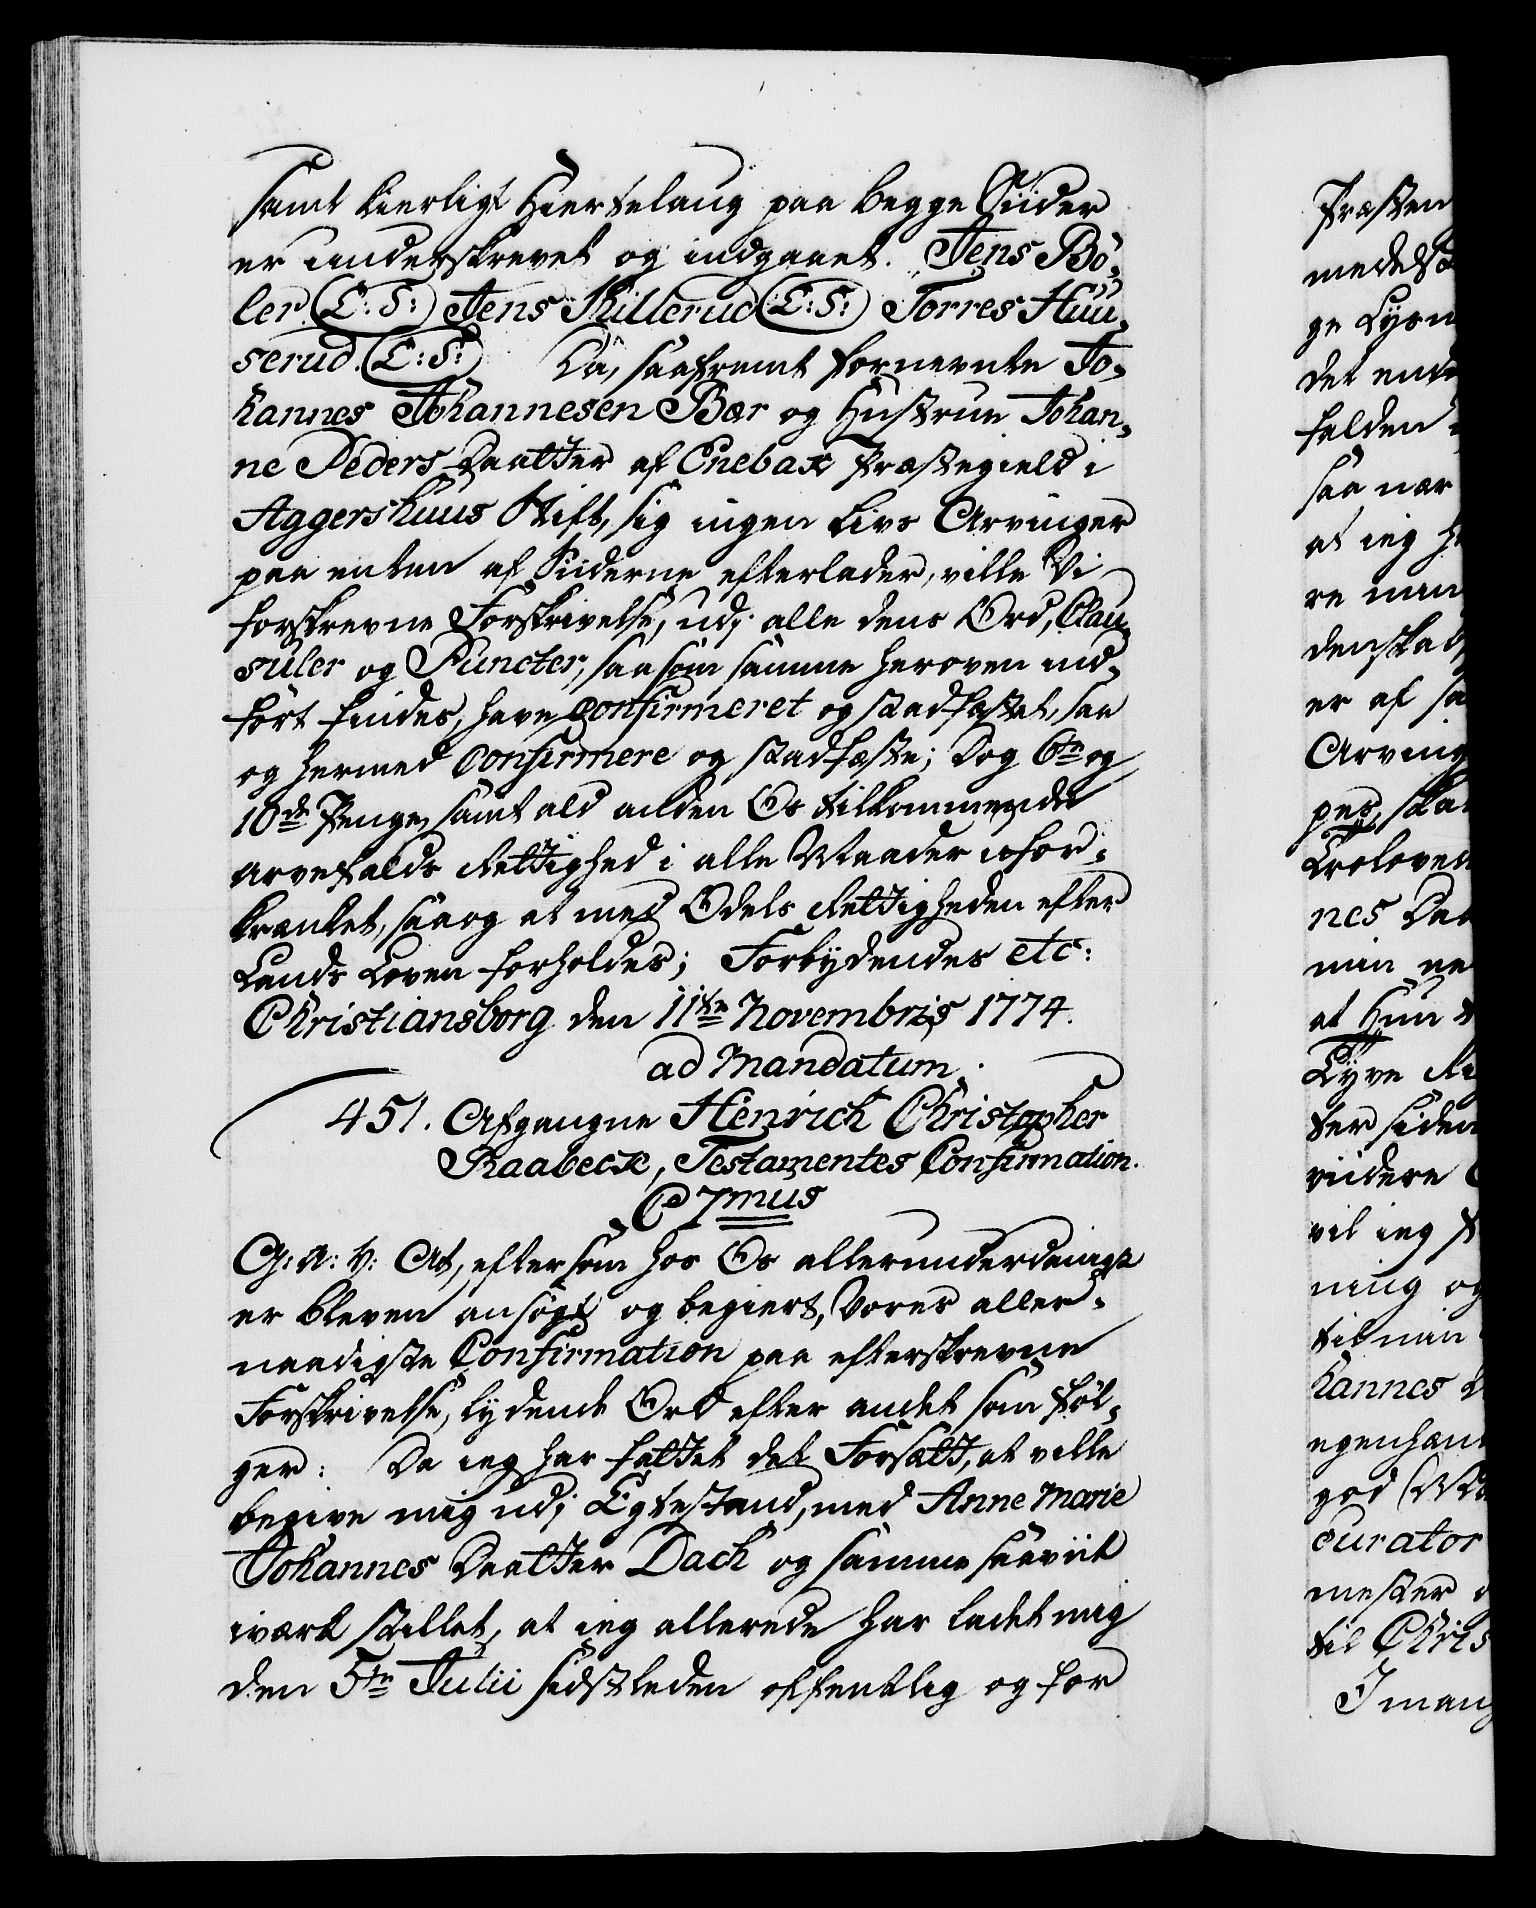 samt kierligt Hiertelaug paa begge Siider
er underskrevet og indgaaet. Jens Bö-
ler (L:S:) Jens Killerud (L:S:) Torres Huu-
serud. (L:S:) Da, saafremt fornevnte Jo-
hannes Johannesen Bær og Hustrue Johan-
ne Peders Daatter af Enebak Præstegield i
Aggershuus Stift, sig ingen Livs Arvinger
paa enten af Siiderne efterlader, ville Vi
forskrevne Forskrivelse, udj alle dens Ord, Clau-
suler og Puncter, saa som samme heroven ind-
fört findes, have Confirmeret og stadfæstet, saa
og hermed Confirmere og stadfæste; Dog 6te og
10de Penge, samt ald anden Os tilkommende
arvefalds Rettighed i alle Maader ufor-
krænket, saa og at med Odels Rettigheden efter
Lands Loven forholdes; Forbydendes etc:
Christiansborg den 11te Novembris 1774.
ad Mandatum.
451. Afgangne Henrich Christopher
Raabeck, Testamentes Confirmation.
C 7mus
G: A: V: At, eftersom hos Os allerunderdanigst
er bleven ansögt og begiert, Vores aller-
naadigste Confirmation paa efterskrevne
Forskrivelse, lydende Ord efter andet som föl-
ger: Da ieg har fattet det Forsætt, at ville
begive mig udj Egtestand, med Anne Marie
Johannes Daatter Dach og samme saaviit
iværk stillet, at ieg allerede har ladet mig
den 5te Julii sidstleden offentlig og for
Præsten
medelst
ge Lysn
det ent
falden
saa nær
at ieg h
re min
denskab
er af sa
Arving
pes, skal
Troloved
nes Daa
min
at Hun
Tyve
ter siden
viidere
vil ieg
ning og
til min
hannes
egenhæn
god
curator
mester
til Chris
I mang